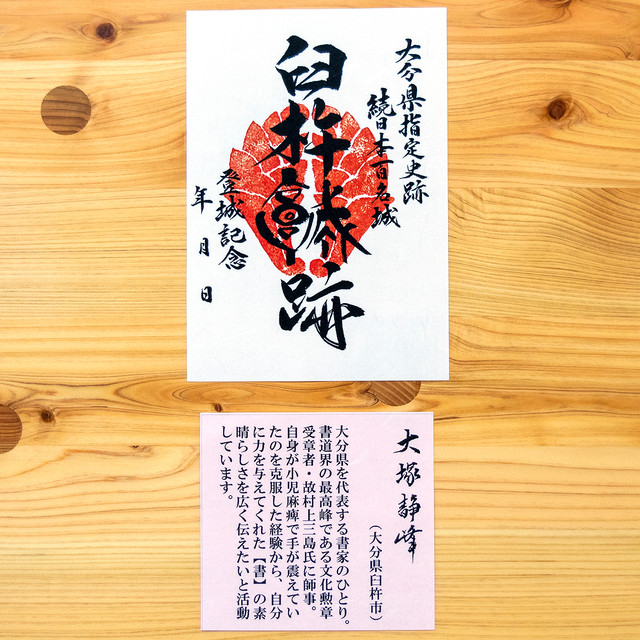 大分県指定史跡
続日本百名城
臼杵城跡
登城記念
年 月 日
大塚静峰
（大分県臼杵市）
大分県を代表する書家のひとり。
書道界の最高峰である文化勲章
受章者・故村上三島氏に師事。
自身が小児麻痺で手が震えてい
たのを克服した経験から、自分
に力を与えてくれた【書】の素
晴らしさを広く伝えたいと活動
しています。